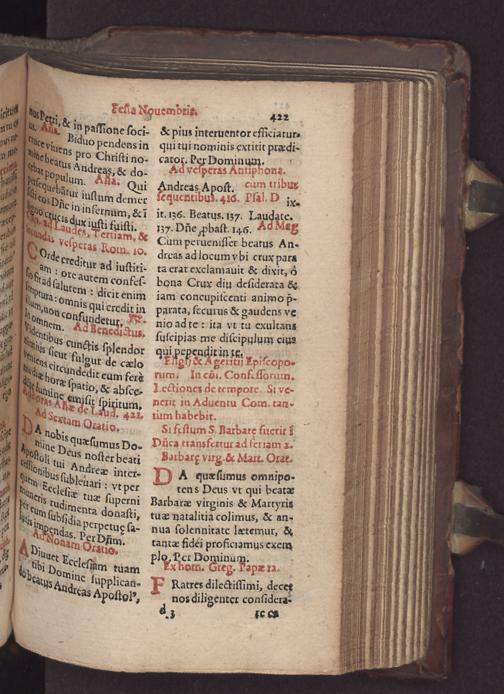 Festa Nouembris. 422
nus Petri, & in passione soci-
us. Aña. Biduo pendens in
cruce viuens pro Christi no-
mine beatus Andreas, & do-
cebat populum. Aña. Qui
persequebatur iustum demer
sisti Dñe in infernum, & ĩ
ligno crucis dux iusti fuisti.
ad Laudes, Tertiam, &
secundas vesperas Rom. 10.
COrde creditur ad iustiti-
am : ore autem confes-
sio fit ad salutem : dicit enim
scriptura: omnis qui credit in
illum, non confundetur. ℣.
In omnem. Ad Benedictus.
Videntibus cunctis splendor
nimius sicut fulgur de cælo
veniens circundedit eum fere
mediæ horæ spatio, & absce-
dente lumine emisit spiritum.
Ad horas Añæ de Laud. 421.
Ad Sextam Oratio.
DA nobis quæsumus Do-
mine Deus noster beati
Apostoli tui Andreæ inter-
cessionibus subleuari : vt per
quem Ecclesiæ tuæ superni
muneris rudimenta donasti,
per eum subsidia perpetuę sa-
lutis impendas. Per Dñm.
Ad Nonam Oratio.
ADiuuet Ecclesiam tuam
tibi Domine supplican-
do beatus Andreas Apostol',
& pius interuentor efficiatur
qui tui nominis extitit prædi-
cator. Per Dominum.
Ad vesperas Antiphona.
Andreas Apost. cum tribus
sequentibus. 416. Psal. D ix-
it. 136. Beatus. 137. Laudate.
137. Dñe ,pbast. 146. Ad Mag
Cum peruenisset beatus An-
dreas ad locum vbi crux para
ta erat exclamauit & dixit, ô
bona Crux diu desiderata &
iam concupiscenti animo p̃-
parata, securus & gaudens ve
nio ad te : ita vt tu exultans
suscipias me discipulum eius
qui pependit in te.
Eligij & Agerici Episcopo-
rum. In cõi. Confessorum.
Lectiones de tempore. Si ve-
nerit in Aduentu Com. tan-
tum habebit.
Si festum S. Barbarę fuerit ĩ
Dñica transfertur ad feriam 2.
Barbarę virg. & Mart. Orat.
DA quæsumus omnipo-
tens Deus vt qui beatæ
Barbaræ virginis & Martyris
tuæ natalitia colimus, & an-
nua solennitate lætemur, &
tantæ fidei proficiamus exem
plo. Per Dominum.
Ex hom. Greg. Papæ 12.
FRatres dilectissimi, decet
nos diligenter considera-
d 3